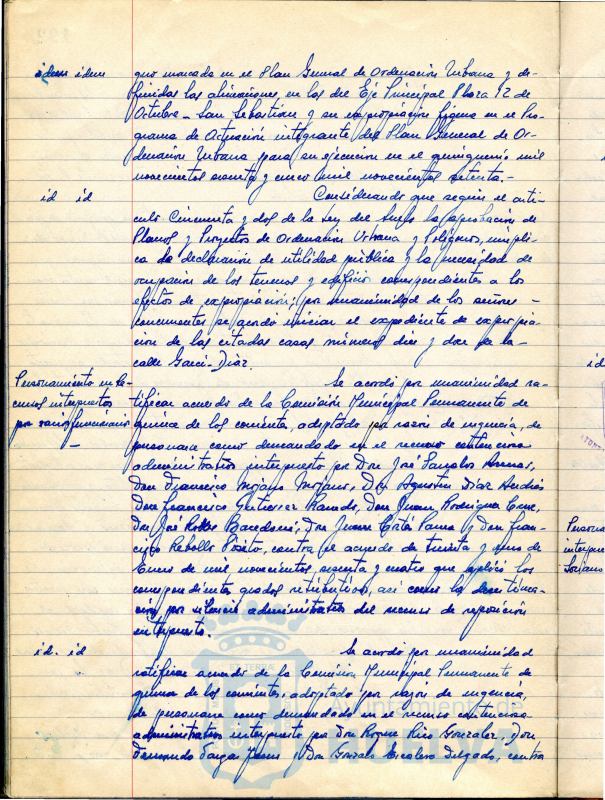 idem idem
que marcada en el Plan General de Ordenación Urbana y de-
finidas las alineaciones en las del Eje Principal Plaza 12 de
Octubre - San Sebastian y su expropiación figura en el Pro-
grama de Actuación integrante del Plan General de Or-
denación Urbana para su ejecucion en el quinquenio mil
novecientos sesenta y cinco mil novecientos setenta.-
id id
Considerando que según el arti-
culo Cincuenta y dos de la Ley del Suelo la aprobación de
Planos y Proyectos de Ordenación Urbana y Poligonos, impli-
ca la declaración de utilidad pública y la necesidad de
ocupación de los terrenos y edificios correspondientes a los
efectos de expropiación; por unanimidad de los señores
concurrentes se acordó iniciar el expediente de expropia-
cion de las citadas casas números diez y doce de la
calle Garci-Diaz.
Personamiento en re-
cursos interpuestos
por varios funcionarios
Se acordó por unanimidad ra-
tificar acuerdo de la Comisión Municipal Permanente de
quince de los corrientes, adoptado por razón de urgencia, de
personarse como demandado en el recurso contencioso
administrativo interpuesto por Don José González
Don Francisco Mojano Mojano, Don Agustin Diaz
Don Francisco Gutierrez Don Juan Rodriguez Cruz,
Don José Robles Don Juan Cortés y Don Fran-
cisco Rebollo contra el acuerdo de treinta y uno de
Enero de mil novecientos sesenta y cuatro que aplicó los
correspondientes grados retributivos, así como la desestima-
ción por silencio administrativo del recurso de reposición
interpuesto.
id. id
Se acordó por unanimidad
ratificar acuerdo de la Comisión Municipal Permanente de
quince de los corrientes, adoptado por razón de urgencia,
de personarse como demandado en el recurso contencioso
administrativo interpuesto por Don Roque Rico Gonzalez, Don
Fernando Vargas y Don Gonzalo Delgado, contra
Ayuntamiento de
HUELVA
id
Persona
interpue